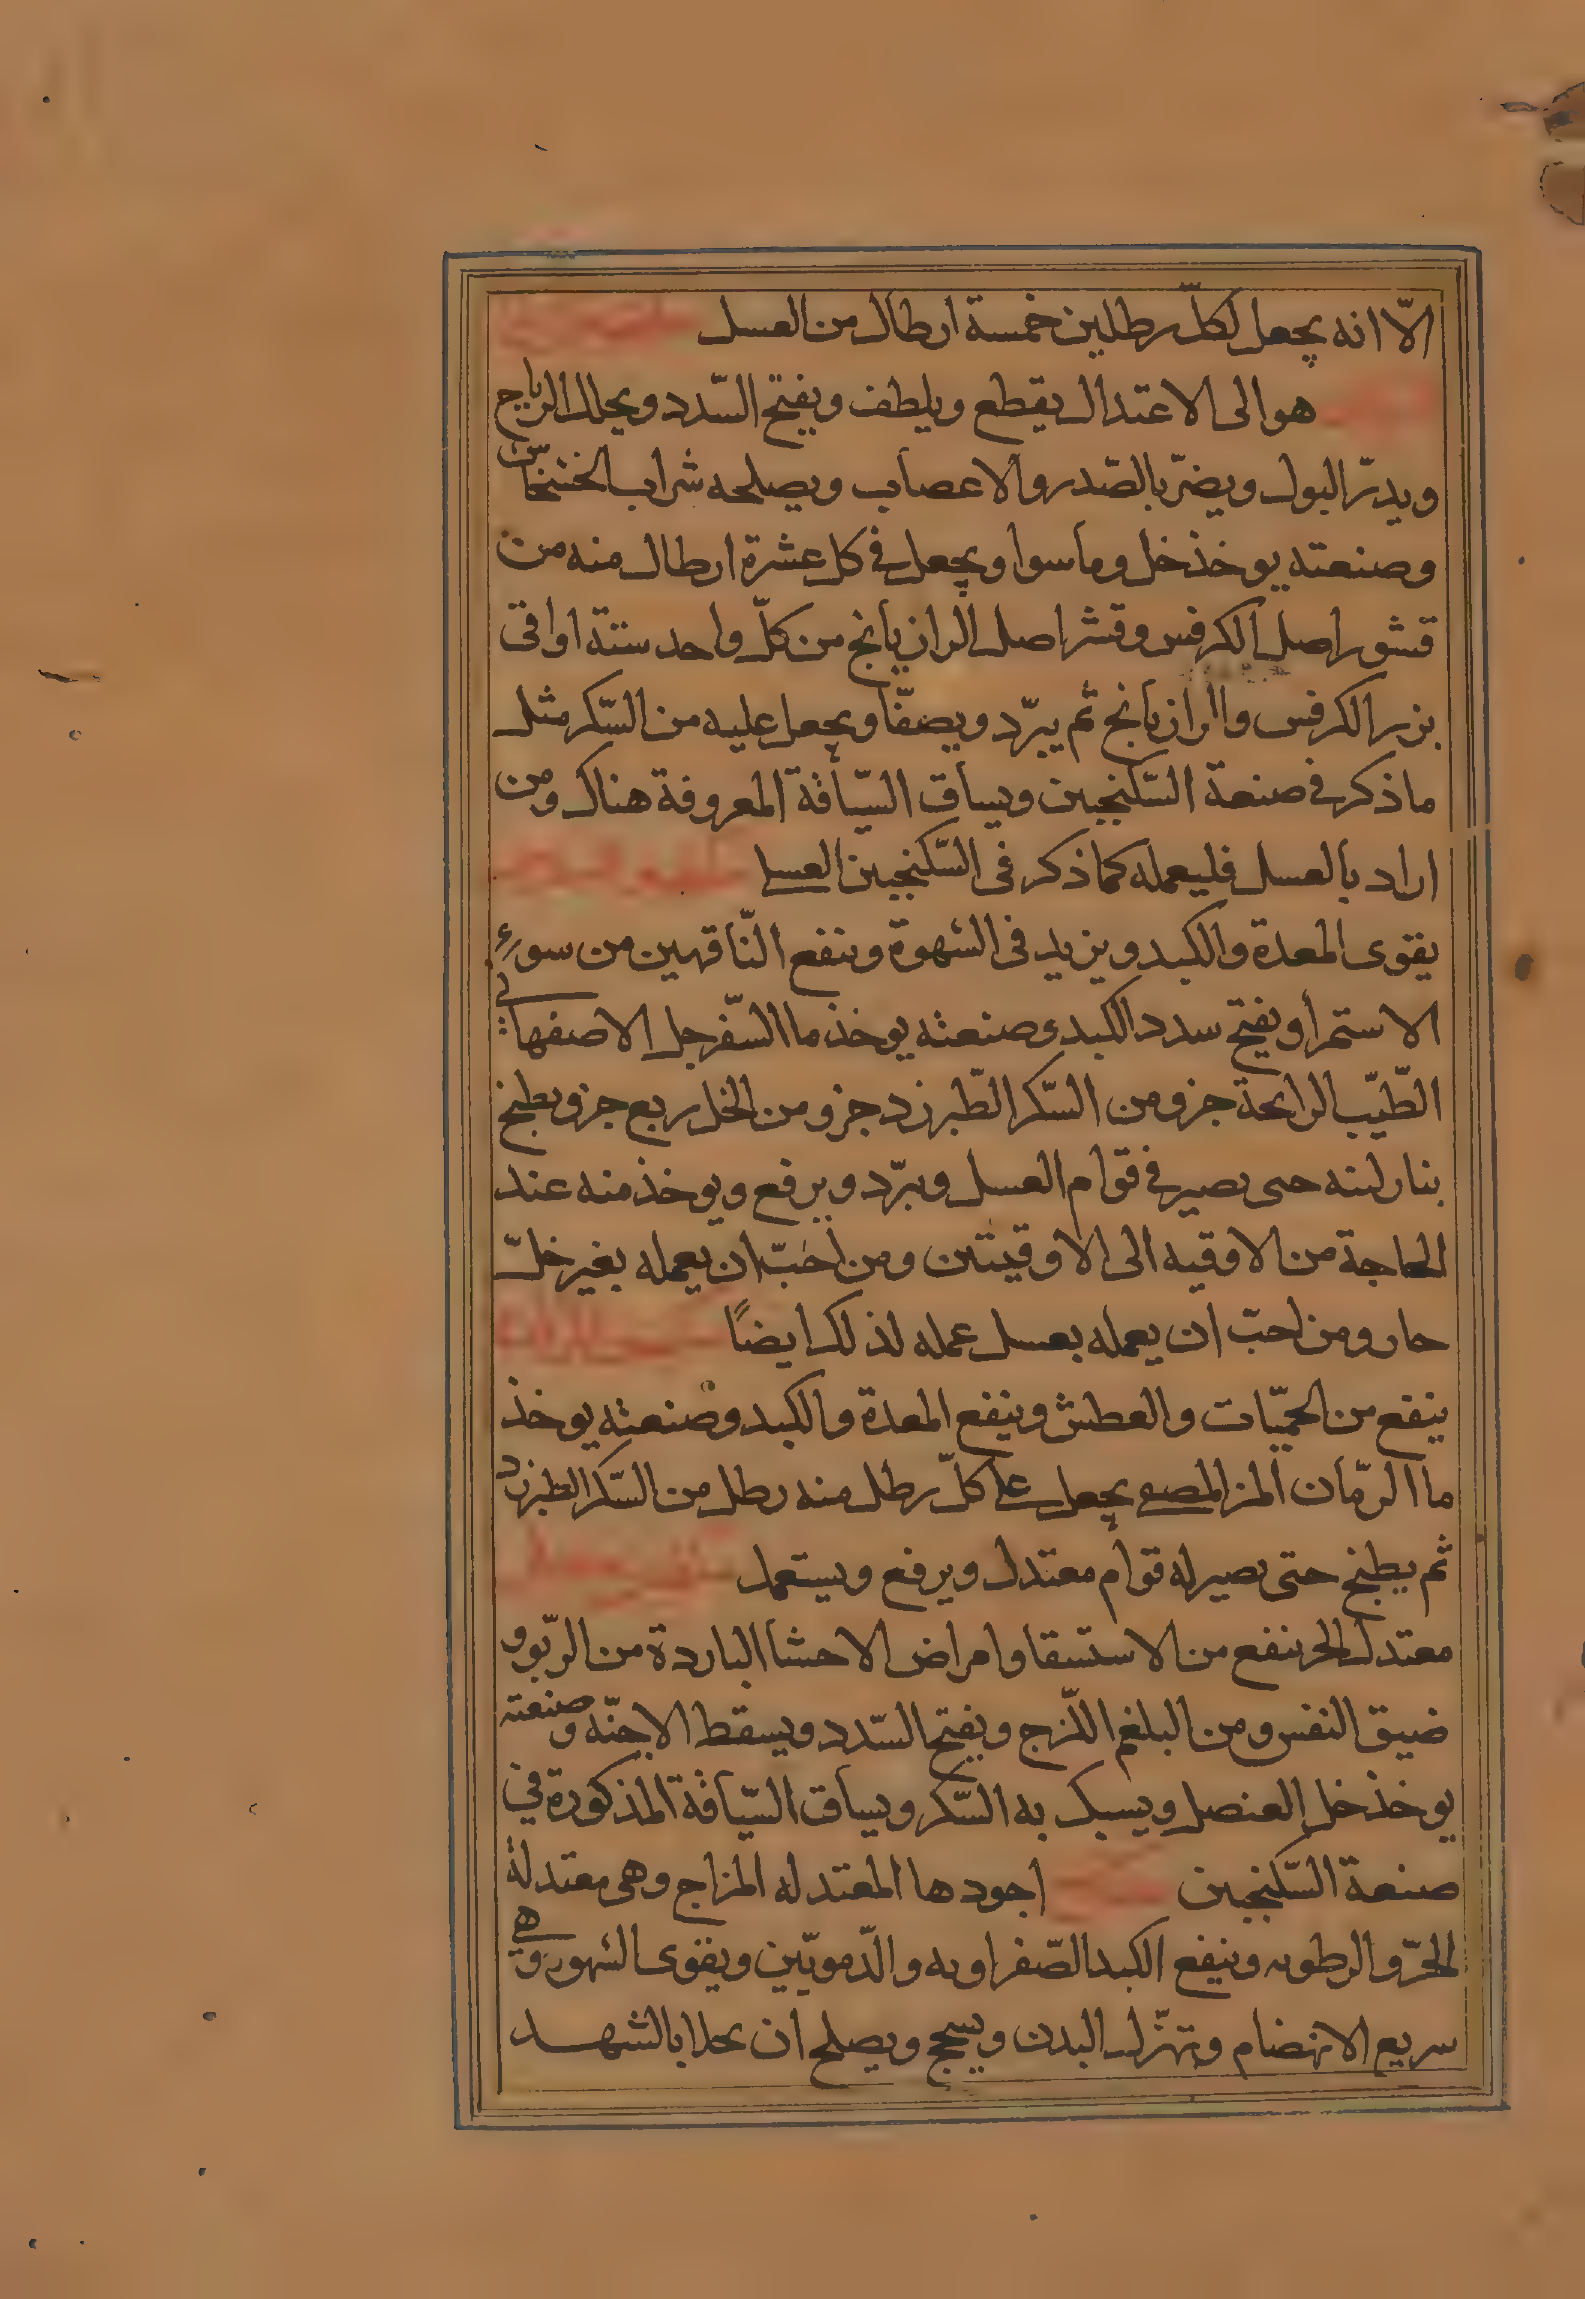 الّا انه يجعل لكلّ رطلين خمسة ارطال من العسل
هو الى الاعتدال يقطع ويلطف ويفتح السّدد ويحلل الرياح
ويدرّ البول ويضرّ بالصّدر والاعصاب ويصلحه شراب الخشخاش
وصنعته يوخذ خل وما سوا ويجعل في كل عشرة ارطال منه من
قشور اصل الكرفس وقشر اصل الرازيانج من كلّ واحد ستة اواقى
بزر الكرفس والرازيانج ثم يبرّد ويصفّا ويجعل عليه من السّكر مثل
ما ذكر في صنعة السّكنجبين ويساق السّياقة المعروفة هناك ومن
اراد بالعسل فليعمله كما ذكر فى السّكنجبين العسلى
يقوى المعدة والكبد ويزيد فى الشهوة وينفع النّاقهين من سوء
الاستمرا ويفتح سدد الكبد وصنعته يوخذ ما السّفرجل الاصفهانى
الطّيّب الرائحة جزو من السّكر الطّبرزد جزو من الخل ربع جزو يطبخ
بنار لينه حتى يصير في قوام العسل ويبرّد ويرفع ويوخذ منه عند
الحاجة من الاوقيه الى الاوقيتين ومن احبّ ان يعمله بغير خلّ
جاز ومن احبّ ان يعمله بعسل عمله لذلك ايضًا
ينفع من الحميّات والعطش وينفع المعدة والكبد وصنعته يوخذ
ما الرمّان المز المصفى يجعل على كلّ رطل منه رطل من السّكر الطبرزد
ثم يطبخ حتى يصير له قوام معتدل ويرفع ويستعمل
معتدل الحر ينفع من الاستسقا وامراض الاحشا الباردة من الرّبو و
ضيق النفس ومن البلغم اللّزج ويفتح السّدد ويسقط الاجنّه وصنعته
يوخذ خل العنصل ويسبك به السّكر ويساق السّياقة المذكورة في
صنعة السّكنجبين اجودها المعتدله المزاج وهى معتدلة
الحرّ والرطوبه وينفع الكبد الصّفراويه والدّمويّين ويقوى الشهوة وهى
سريع الانهضام وتهزّل البدن ويسحج ويصلح ان يحلا بالشهد